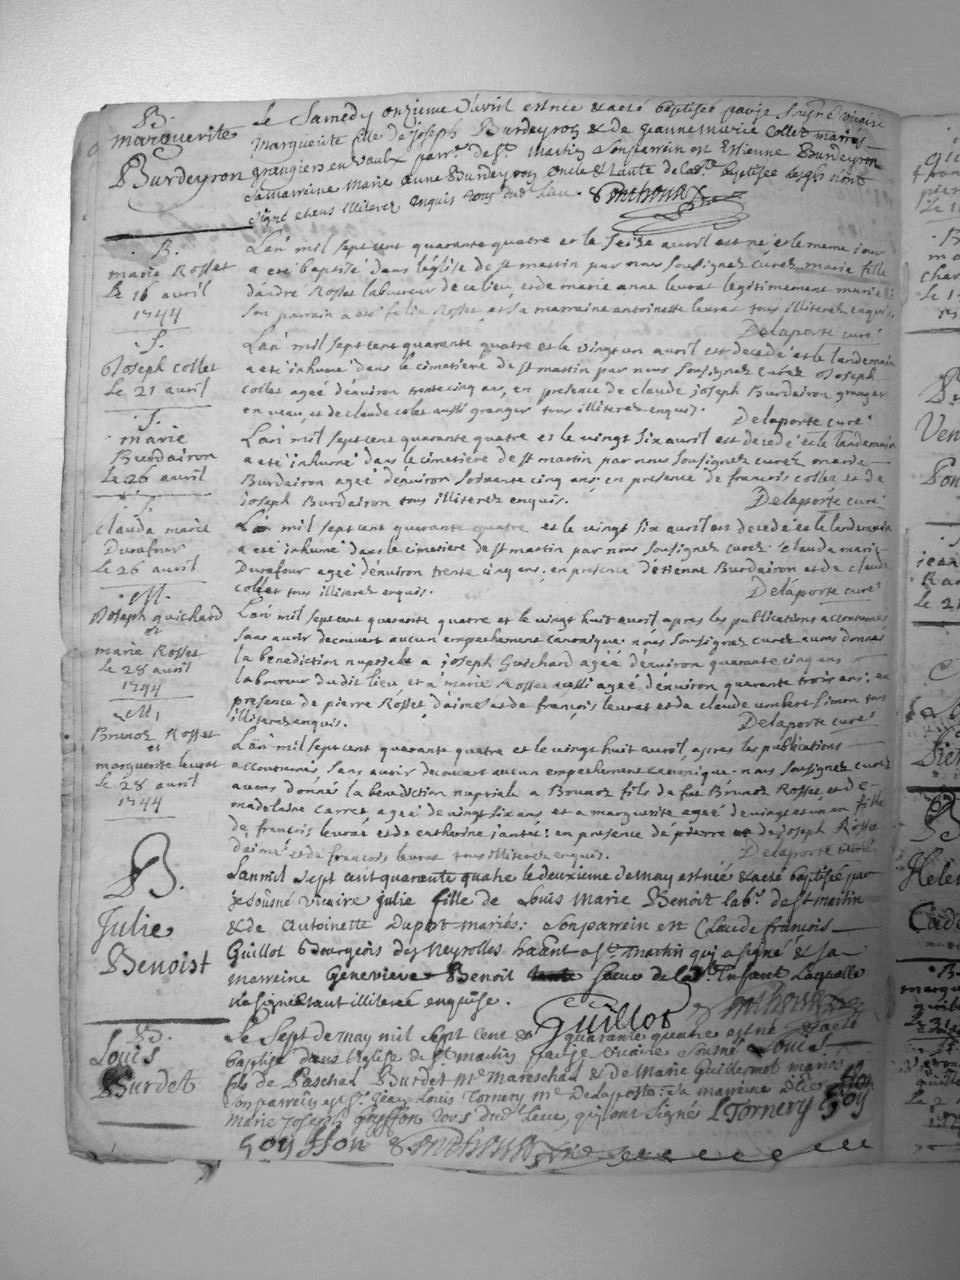 B.
Marguerite
Burdeyron
Le Samedy onzieme d'avril est née & a eté baptisée par je soussigné vicaire
Marguerite fille de joseph Burdeyron & de jeanne marie Collet mariés
grangiers en vaulx parr.e de St. Martin son parrein est Estienne Burdeyron
sa marreine Marie anne Burdeyron oncle & tante de la d.e baptisée lesquels n'ont
signé etans illiterez enquis tous dud. lieu.
B.
marie Rosset
Le 16 avril
1744
L'an mil sept cent quarante quatre et le seize avril est né et le meme jour
a eté baptisé dans l'église de st martin par nous soussignez curez marie fille
d'andré Rosset laboureur de ce lieu, et de marie anne levrat legitimement mariés
son parrain a eté felix Rosset, et sa marraine antoinette levrat tous illiterez enquis
Delaporte curé
S.
Joseph collet
Le 21 avril
L'an mil sept cent quarante quatre et le vingt un avril est decedé et le landemain
a eté inhumé dans le cimetiere de st martin par nous soussignez curez Joseph
collet ageé d'environ trente cinq ans, en presence de claude joseph Burdairon granger
en veau, et de claude colet aussi granger tous illiterez enquis.
Delaporte curé
S.
marie
Burdairon
Le 26 avril
L'an mil sept cent quarante quatre et le vingt six avril est decedé et le landemain
a eté inhumé dans le cimetiere de st martin par nous soussignez curez marie
Burdairon ageé d'environ soixante cinq ans; en presence de francois collet et de
joseph Burdairon tous illiterez enquis.
Delaporte curé
clauda marie
Durafour
Le 26 avril
L'an mil sept cent quarante quatre et le vingt six avril est decedé et le landemain
a eté inhumé dans le cimetiere de st martin par nous soussignez curez clauda marie
Durafour ageé d'environ trente cinq ans. en presence d'etienne Burdairon et de claude
collet tous illiterez enquis.
Delaporte curé
M.
Joseph guichard
et
marie Rosset
Le 28 avril
1744
L'an mil sept cent quarante quatre et le vingt huit avril apres les publications accoutumés
sans avoir decouvert aucun empechement canonique. nous soussignez curez avons donné
la benediction nuptiale a joseph Guichard ageé d'environ quarante cinq ans
laboureur du dit lieu et a marie Rosset aussi ageé d'environ quarante trois ans; en
presence de pierre Rosset d'aimé et de françois levrat et de claude umbert simon tous
illiterez enquis.
Delaporte curé
M.
Brunoz Rosset
et
marguerite levrat
Le 28 avril
1744
L'an mil sept cent quarante quatre et le vingt huit avril, apres les publications
accoutumés, sans avoir decouvert aucun empechement canonique. nous soussignez curez
avons donné la benediction nuptiale a Brunoz fils de fue Brunoz Rosset, et de
madelaine carret ageé de vingt six ans et a marguerite ageé de vingt et un an fille
de françois levrat et de catherine jantet: en presence de pierre et de joseph Rosset
d'aimé et de francois levrat tous illiterez enquis.
Delaporte curé
B.
Julie
Benoist
L'an mil sept cent quarante quatre le deuxieme de may est née & a eté baptisée par
je sousné vicaire julie fille de Louis Marie Benoit lab.r de St martin
& de Antoinette Dupont mariés: son parrein est Claude françois
Guillot Bourgeois des Neyrolles habitant a St. martin qui a signé & sa
marreine Genevieve Benoit soeur de la d. Enfant laquelle
n'a signé etant illiterée enquise.
Guillot
B.
Louis
Burdet
Le sept de may mil sept cent & quarante quatre est né & a eté
baptisé dans l'eglise de St martin par je vicaire sousné Louis
fils de Paschal Burdet me Mareschal & de Marie Guillermot mariés
son parrein est Sr. jean Louis Tornery
Marie Joseph Goyffon tous dud. Lieu, qui ont signés L Tornery
Goyffon